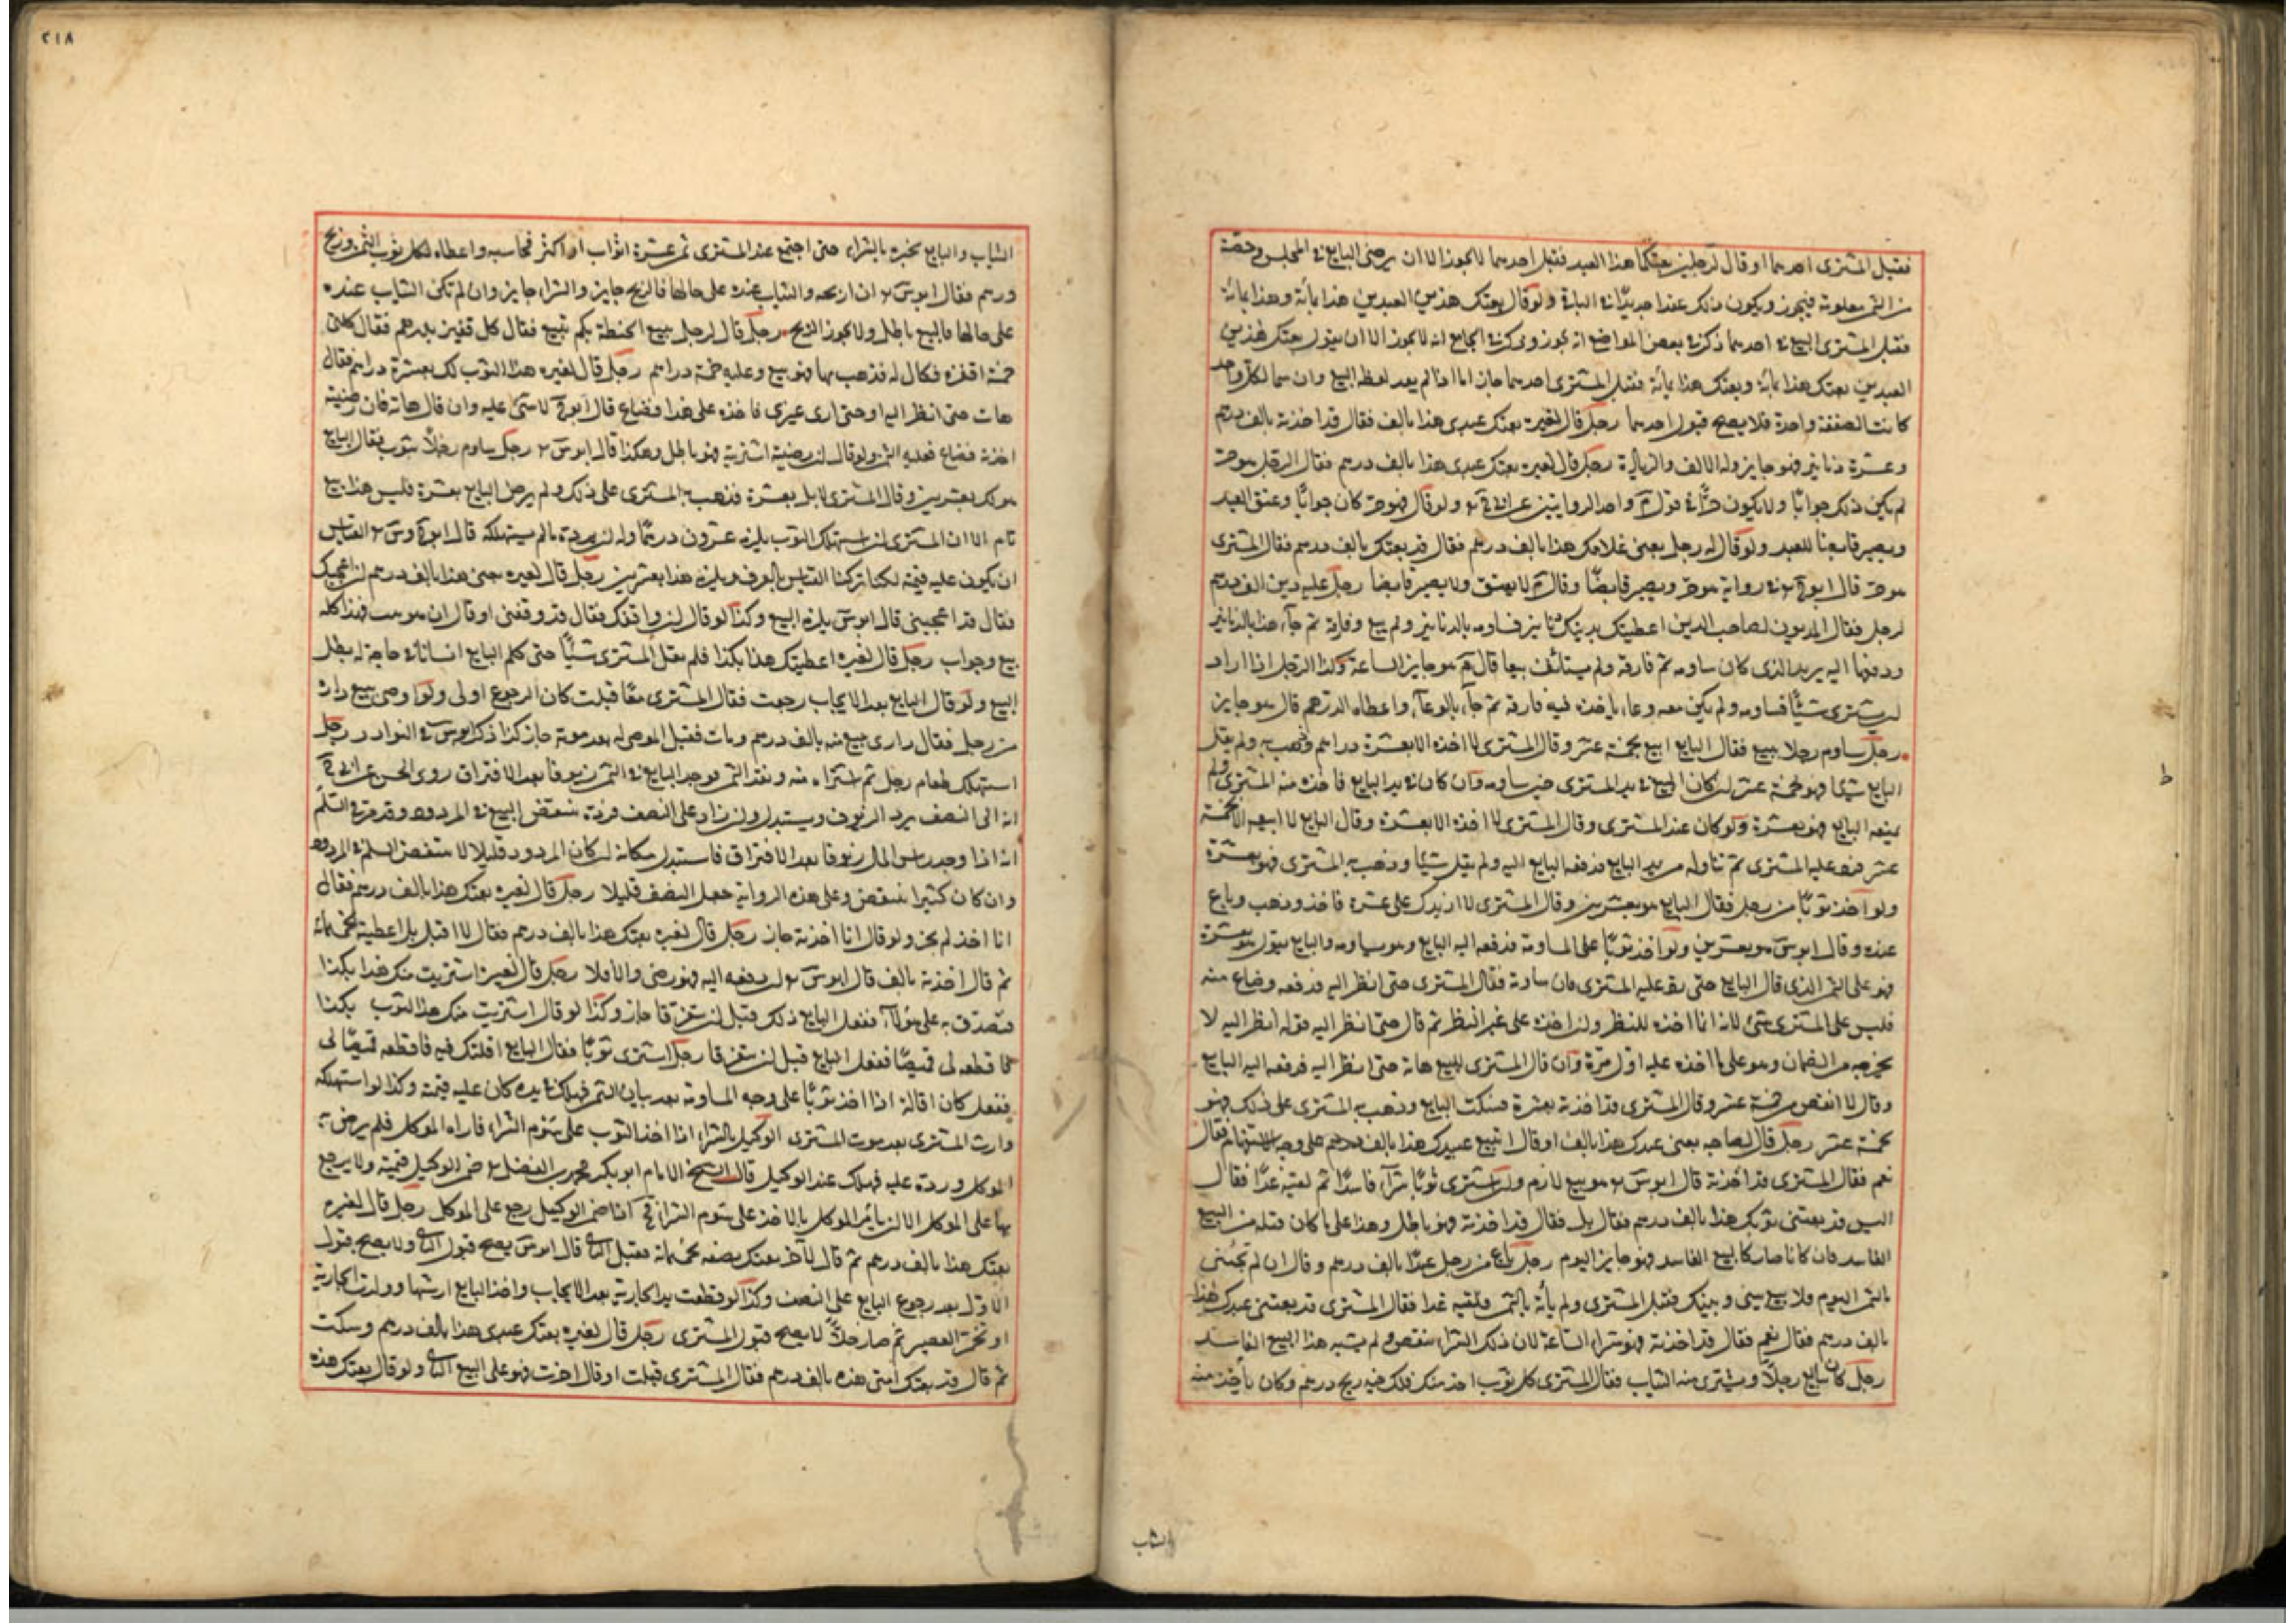 فقبل المشترى احدهما او قال لرجلين بعتكما هذا العبد فقبل احدهما لا يجوز الا ان يرضى البايع فى المجلس وحصة
من الثمن معلومة فيجوز ويكون ذلك عقدا جديدا ولو قال بعتك هذين العبدين هذا بمائة وهذا بمائة
فقبل المشترى البيع فى احدهما ذكر فى بعض المواضع انه يجوز وذكر فى الجامع انه لا يجوز الا ان يقول بعتك هذين
العبدين بعتك هذا بمائة وبعتك هذا بمائة فقبل المشترى احدهما جاز اما اذا لم يعد لفظ البيع وان سما لكل واحد
كانت الصفقة واحدة فلا يصح قبول احدهما رجل قال لغيره بعتك عبدى هذا بالف فقال قد اخذته بالف درهم
وعشرة دنانير فهو جايز وله الالف والزيادة رجل قال لغيره بعتك عبدى هذا بالف درهم فقال الرجل هو حر
لم يكن ذلك جوابا ولا يكون حرا فى قول واحد الروايتين عن ولو قال فهو حر كان جوابا وعتق العبد
ويصير قابضا للعبد ولو قال له رجل بعنى غلامك هذا بالف درهم فقال قد بعتك بالف درهم فقال المشترى
هو حر قال فى رواية هو حر ويصير قابضا وقال لا يعتق ولا يصير قابضا رجل عليه دين الف درهم
لرجل فقال المديون لصاحب الدين اعطيتك بدينك دنانير فساومه بالدنانير ولم يبع وفارقه ثم جاء هذا بالدنانير
ودفعها اليه يريد الذى كان ساومه ثم فارقه ولم يستأنف بيعا قال هو جايز الساعة وكذا الرجل اذا اراد
ان يشترى شيئا فساومه ولم يكن معه وعاء ياخذه فيه فارقه ثم جاء بالوعاء واعطاه الدرهم قال هو جايز
رجل ساوم رجلا ببيع فقال البايع ابيع بخمسة عشر وقال المشترى لا اخذه الا بعشرة دراهم فذهب به ولم يقل
البايع شيئا فهو بخمسة عشر ان كان المبيع فى يد المشترى حين ساومه وان كان فى يد البايع فاخذه منه المشترى ولم
يمنعه البايع فهو بعشرة ولو كان عند المشترى وقال المشترى لا اخذه الا بعشرة وقال البايع لا ابيعه الا بخمسة
عشر فرد عليه المشترى ثم تناوله من يد البايع فدفعه البايع اليه ولم يقل شيئا وذهب به المشترى فهو بعشرة
ولو اخذ ثوبا من رجل فقال البايع هو بعشرين وقال المشترى لا ازيدك على عشرة فاخذ وذهب وباع
عنده وقال ابو س هو بعشرين ولو اخذ ثوبا على المساومة فدفعه اليه البايع وهو يساومه والبايع يقول هو بعشرة
فهو على الثمن الذى قال البايع حتى يرد عليه المشترى فان ساومه فقال المشترى حتى انظر اليه فدفعه وضاع منه
فليس على المشترى شئ لانه انما اخذه للنظر وان اخذه على غير النظر ثم قال حتى انظر اليه فقوله انظر اليه لا
يخرجه من الضمان وهو على ما اخذه عليه اول مرة وان قال المشترى للبيع هاته حتى انظر اليه فدفعه اليه البايع
وقال لا انقص من خمسة عشر وقال المشترى قد اخذته بعشرة فسكت البايع وذهب به المشترى على ذلك فهو
بخمسة عشر رجل قال لصاحبه بعنى عبدك هذا بالف او قال اتبيع عبدك هذا بالف درهم على وجه الاستفهام فقال
نعم فقال المشترى قد اخذته قال ابو س هو بيع لازم ولو اشترى ثوبا شراء فاسدا ثم لقيه غدا فقال
اليس قد بعتنى ثوبك هذا بالف درهم فقال بلى فقال قد اخذته فهو باطل وهذا على ما كان قبله من البيع
الفاسد فان كانا تتاركا البيع الفاسد فهو جايز اليوم رجل باع من رجل عبدا بالف درهم وقال ان لم تجئنى
بالثمن اليوم فلا بيع بينى وبينك فقبل المشترى ولم يأته بالثمن ولقيه غدا فقال المشترى قد بعتنى عبدك هذا
بالف درهم فقال نعم فقال قد اخذته فهو شراء الساعة لان ذلك الشراء ينتقض ولم يشبه هذا البيع الفاسد
رجل كان يبايع رجلا ويشترى منه الثياب فقال المشترى كل ثوب اخذ منك فلك فيه ربح درهم وكان يأخذ منه
الثياب
٢١٨
الثياب والبايع يخبره بالشراء حتى اجتمع عند المشترى ثمن عشرة اثواب او اكثر فحاسبه واعطاه لكل ثوب الثمن وربح
درهم فقال ابو س ان اربحه والثياب عنده على حالها فالربح جايز والشراء جايز وان لم تكن الثياب عنده
على حالها فالبيع باطل ولا يجوز الربح رجل قال لرجل يبيع الحنطة بكم تبيع فقال كل قفيز بدرهم فقال كلنى
خمسة اقفزة فكال له فذهب بها فهو بيع وعليه خمسة دراهم رجل قال لغيره هذا الثوب لك بعشرة دراهم فقال
هات حتى انظر اليه او حتى ارى غيرى فاخذه على هذا وضاع قال لا شئ عليه وان قال هاته فان رضيته
اخذته فضاع فعليه الثمن ولو قال ان رضيته اشتريته فهو باطل وهكذا قال ابو س رجل ساوم رجلا بثوب فقال البايع
هو لك بعشرين وقال المشترى لا بل بعشرة فذهب به المشترى على ذلك ولم يرض البايع بعشرة فليس هذا ببيع
تام الا ان المشترى ان استهلك الثوب يلزمه عشرون درهما وله ان يرده ما لم يستهلكه قال القياس
ان يكون عليه قيمته لكنا تركنا القياس بالعرف ويلزمه هذا بعشرين رجل قال لغيره بعنى هذا بالف درهم ان اعجبك
فقال قد اعجبنى قال ابو س يلزمه البيع وكذا لو قال ان وافقك فقال قد وافقنى او قال ان هويت فهذا كله
بيع وجواب رجل قال لغيره اعطيتك هذا بكذا فلم يقل المشترى شيئا حتى كلم البايع انسانا فى حاجة له بطل
البيع ولو قال البايع بعد الايجاب رجعت فقال المشترى معا قبلت كان الرجوع اولى ولو اوصى ببيع داره
من رجل فقال دارى بيع منه بالف درهم ومات فقبل الموصى له بعد موته جاز كذا ذكر ابو س فى النوادر رجل
استهلك طعام رجل ثم اشتراه منه ونقد الثمن فوجد البايع فى الثمن زيوفا بعد الافتراق روى الحسن عن
انه الى النصف يرد الزيوف ويستبدل وان زاد على النصف فرده ينتقض البيع فى المردود وقد مر فى السلم
انه اذا وجد راس المال زيوفا بعد الافتراق فاستبدل مكانه ان كان المردود قليلا لا ينتقض السلم فى المردود
وان كان كثيرا ينتقض وعلى هذه الرواية جعل النصف قليلا رجل قال لغيره بعتك هذا بالف درهم فقال
انا اخذ لم يجز ولو قال انا اخذته جاز رجل قال لغيره بعتك هذا بالف درهم فقال لا اقبل بل اعطيته بخمسمائة
ثم قال اخذته بالف قال ابو س ان دفعه اليه فهو رضى والا فلا رجل قال لغيره اشتريت منك هذا بكذا
فتصدق به على هؤلاء ففعل البايع ذلك قبل ان يتفرقا جاز وكذا لو قال اشتريت منك هذا الثوب بكذا
فاقطعه لى قميصا ففعل البايع قبل ان يتفرقا رجل اشترى ثوبا فقال البايع اقلتك فيه فاقطعه قميصا لى
ففعل كان اقالة اذا اخذ ثوبا على وجه المساومة بعد بيان الثمن فهلك فى يده كان عليه قيمته وكذا لو استهلكه
وارث المشترى بعد موت المشترى الوكيل بالشراء اذا اخذ الثوب على سوم الشراء فاراه الموكل فلم يرض به
الموكل ورده عليه فهلك عند الوكيل قال الشيخ الامام ابو بكر محمد بن الفضل ضمن الوكيل قيمته ولا يرجع
بها على الموكل الا ان يأمر الموكل بالاخذ على سوم الشراء اذا ضمن الوكيل رجع على الموكل رجل قال لغيره
بعتك هذا بالف درهم ثم قال لآخر بعتك نصفه بخمسمائة فقبل قال ابو س يصح قبول ولا يصح قبول
الاول بعد رجوع البايع على النصف وكذا لو قطعت يد الجارية بعد الايجاب واخذ البايع ارشها او ولدت الجارية
او تخمر العصير ثم صار خلا لا يصح قبول المشترى رجل قال لغيره بعتك عبدى هذا بالف درهم وسكت
ثم قال قد بعتك امتى هذه بالف درهم فقال المشترى قبلت او قال اخذت فهو على البيع ولو قال بعتك هذه